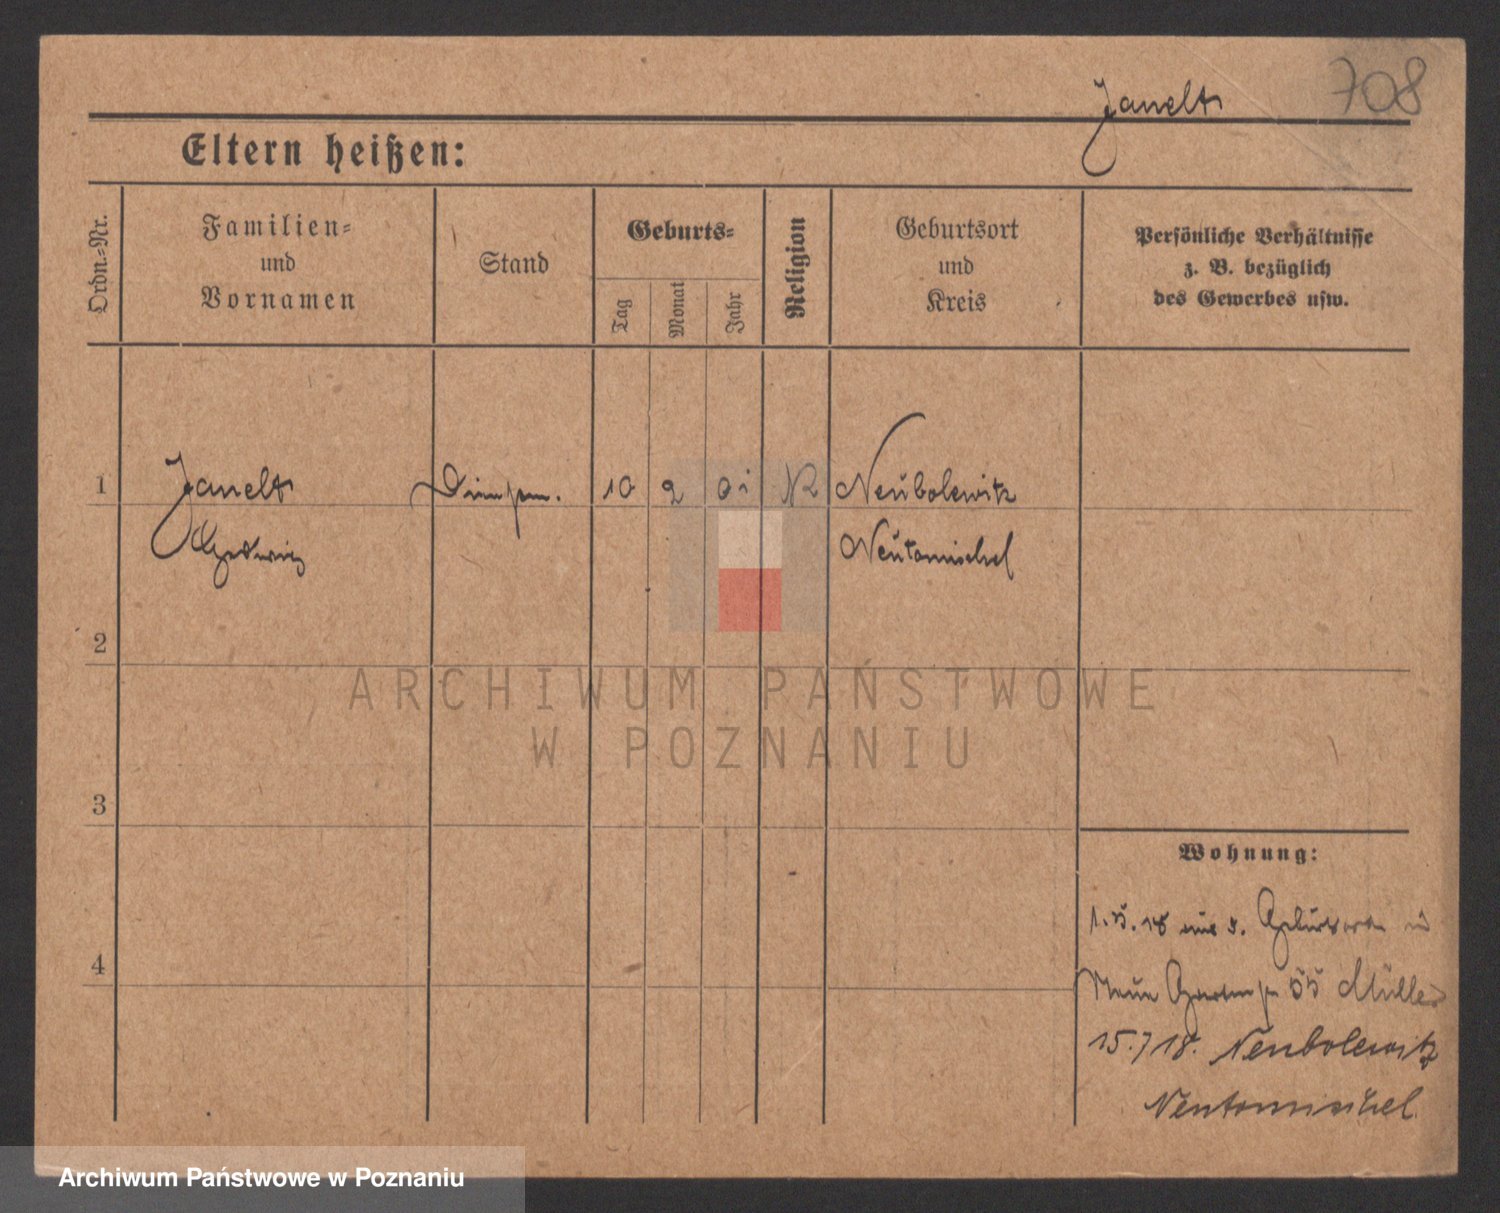 708
Janelt
Eltern heißen:
Ordn.-Nr.
Familien-
und
Vornamen
Stand
Geburts-
Tag
Monat
Jahr
Religion
Geburtsort
und
Kreis
Persönliche Verhältnisse
z. B. bezüglich
des Gewerbes usw.
1 Janelt 10 2 01 K Neubolewitz
Hedwig Neutomischel
2
3
4
Wohnung:
1.5.18 aus d. Geburtsort in
Neue Gartenstr 55 Müller
15.7 18. Neubolewitz
Neutomischel
ARCHIWUM PAŃSTWOWE
W POZNANIU
Archiwum Państwowe w Poznaniu